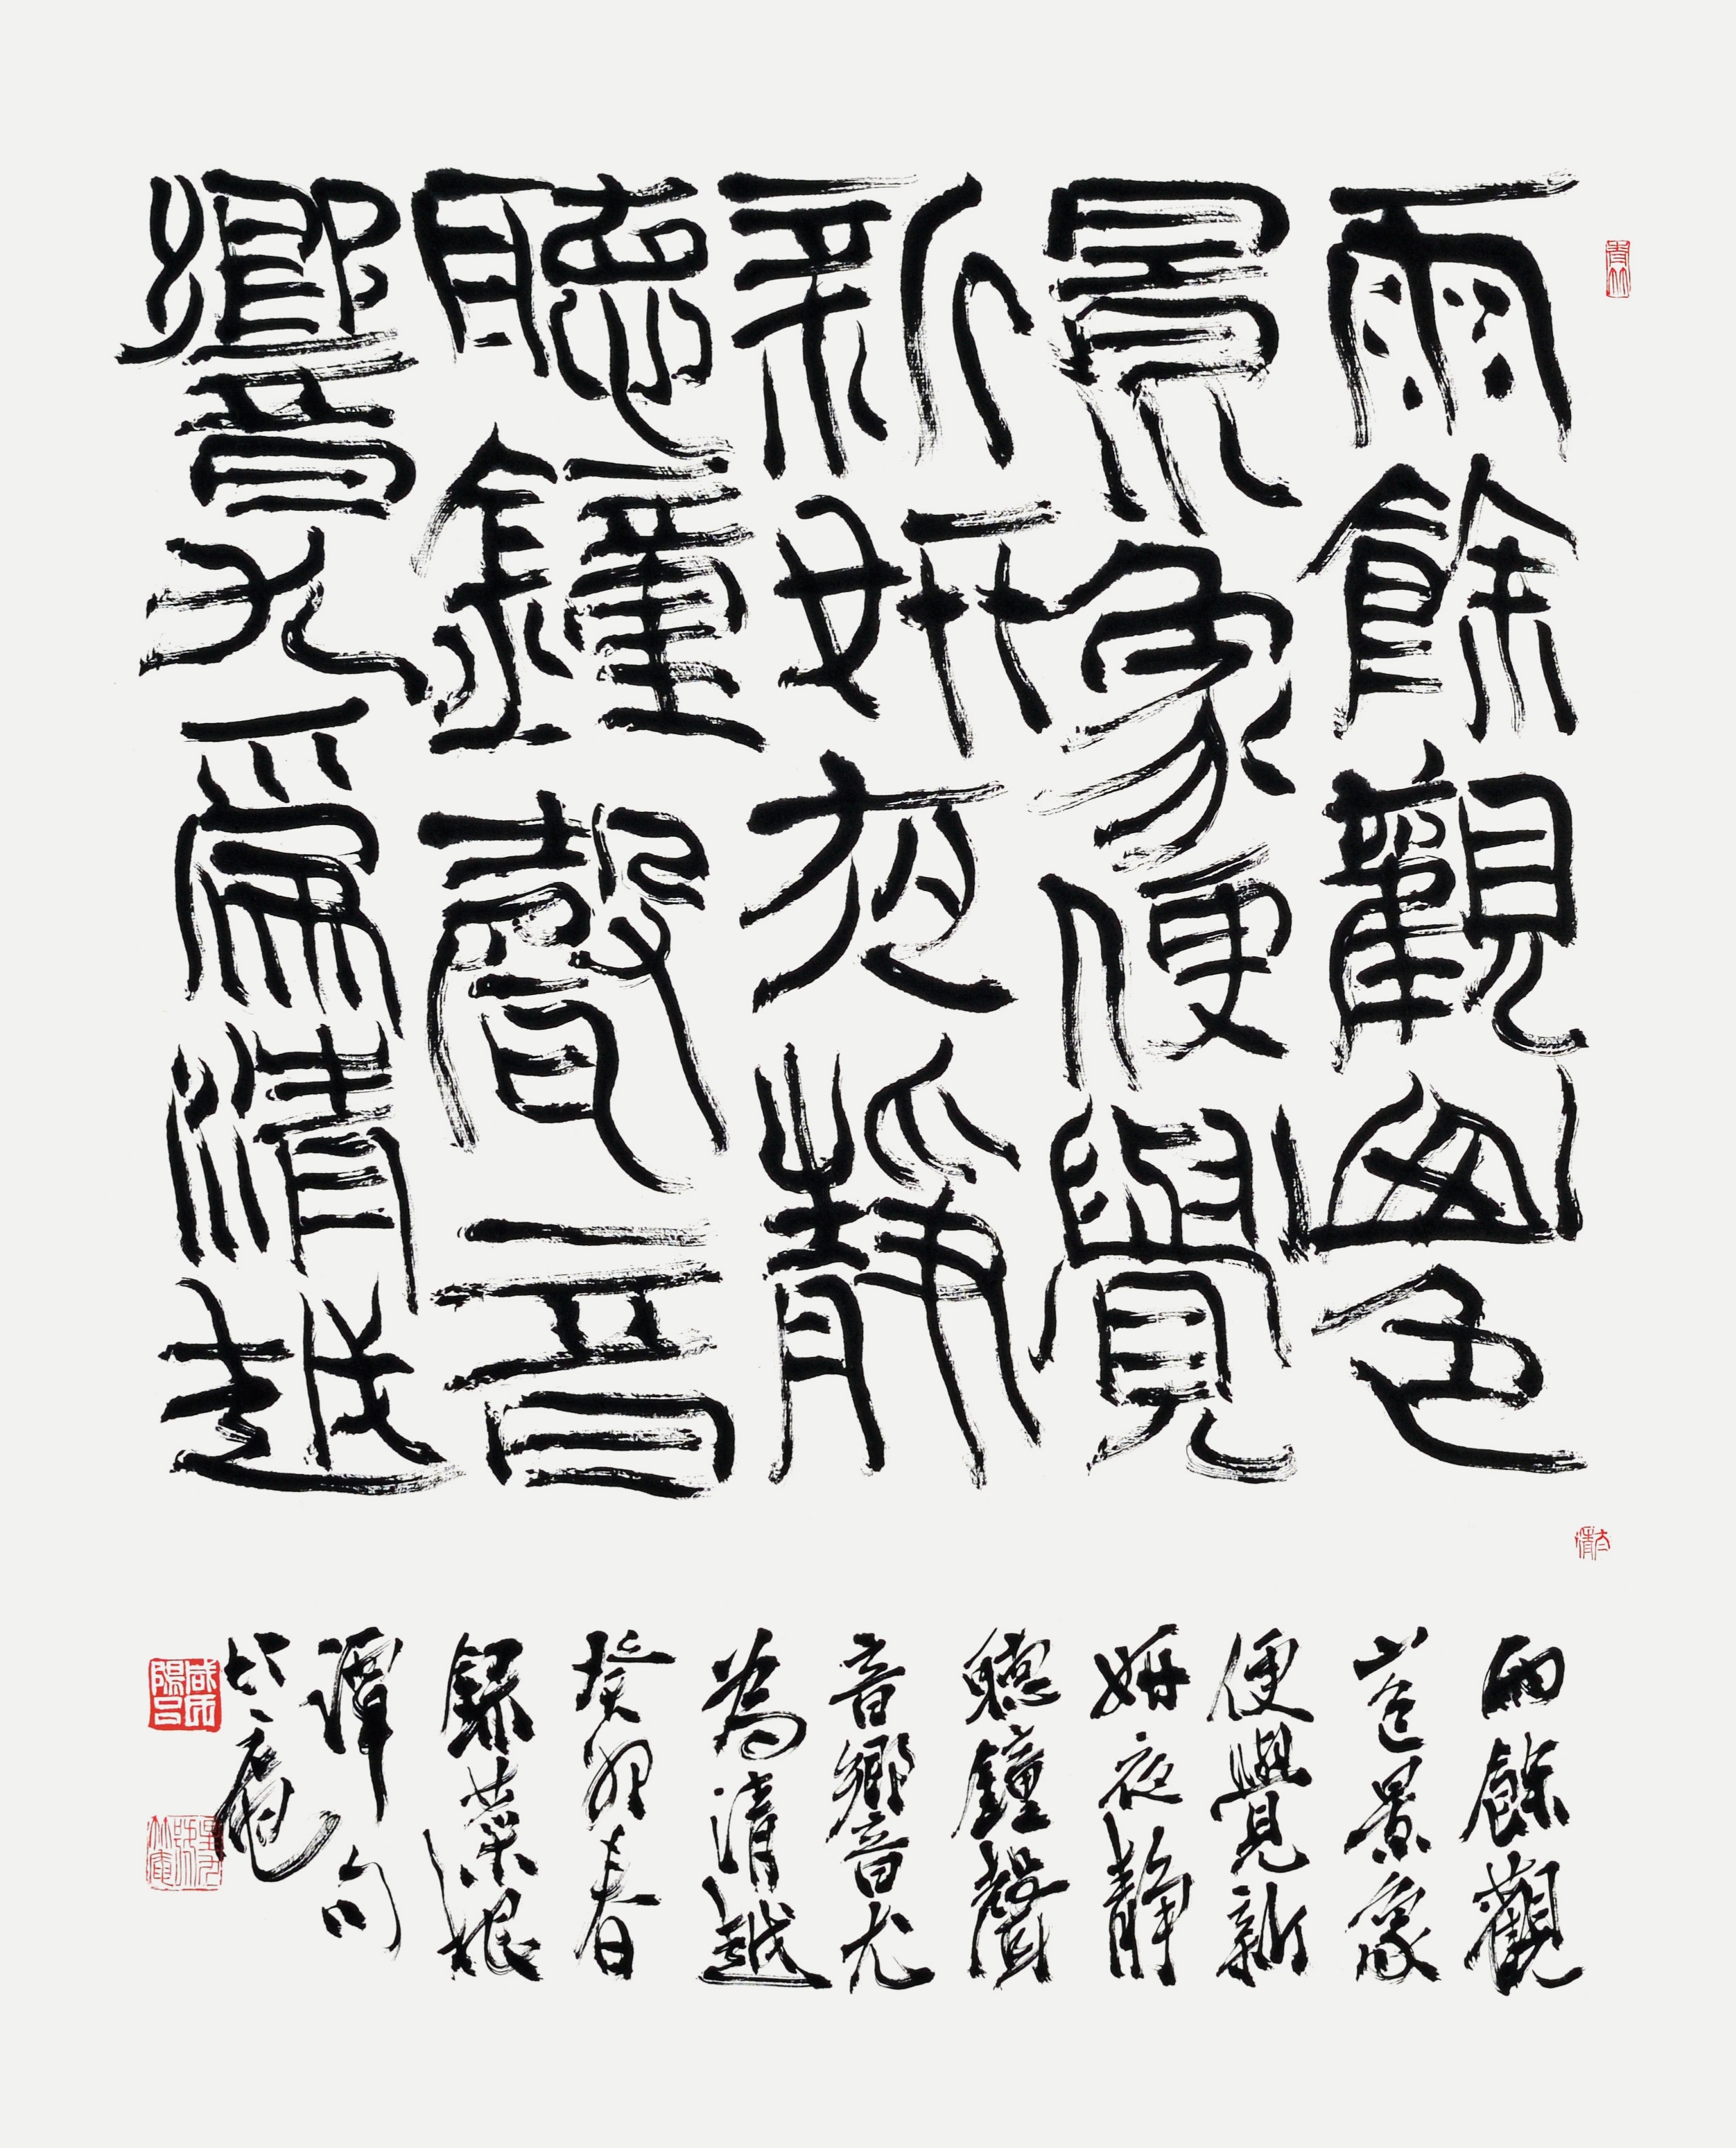 雨餘觀山色
景象便覺
新妍夜靜
聽鐘聲音
響尤爲清越
雨餘觀
山色景象
便覺新
妍夜靜
聽鐘聲
音響尤
為清越
癸卯春
錄菜根
譚句